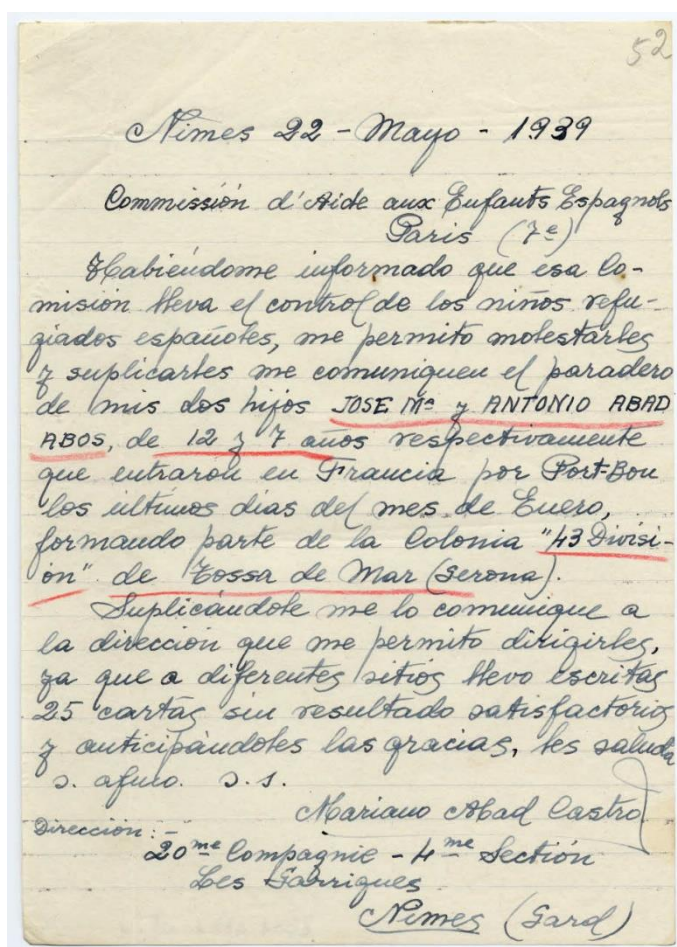 52
Nimes 22 - Mayo - 1939
Commissión d'Aide aux Enfants Espagnols
Paris (7e)
Habiéndome informado que esa Co-
misión lleva el control de los niños refu-
giados españoles, me permito molestarles
y suplicarles me comuniquen el paradero
de mis dos hijos JOSE Mª y ANTONIO ABAD
ABOS, de 12 y 7 años respectivamente
que entraron en Francia por Port-Bou
los últimos días del mes de Enero,
formando parte de la Colonia "43 Divisi-
ón" de Tossa de Mar (Gerona).
Suplicándole me lo comunique a
la dirección que me permito dirigirles,
ya que a diferentes sitios llevo escritas
25 cartas sin resultado satisfactorio
y anticipándoles las gracias, les saluda
s. afmo. s.s.
Mariano Abad Castro
Dirección:-
20me Compagnie - 4me Sectión
Les Garrigues
Nimes (Gard)